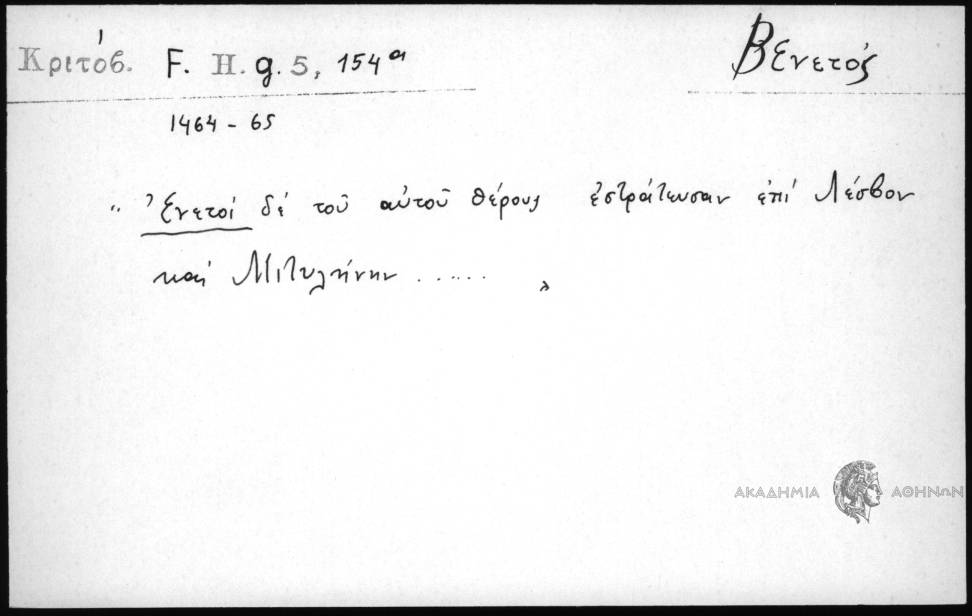 Κριτόβ. F. H. g. 5, 154α Βενετός
1464 - 65
" Ἐνετοί δέ τοῦ αὐτοῦ θέρους ἐστράτευσαν ἐπί Λέσβον
καί Μιτυλήνην ...... »
ΑΚΑΔΗΜΙΑ ΑΘΗΝΩΝ